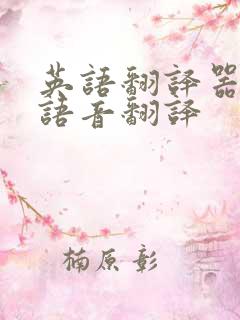 英語翻譯器
語音翻譯
楠原 彰